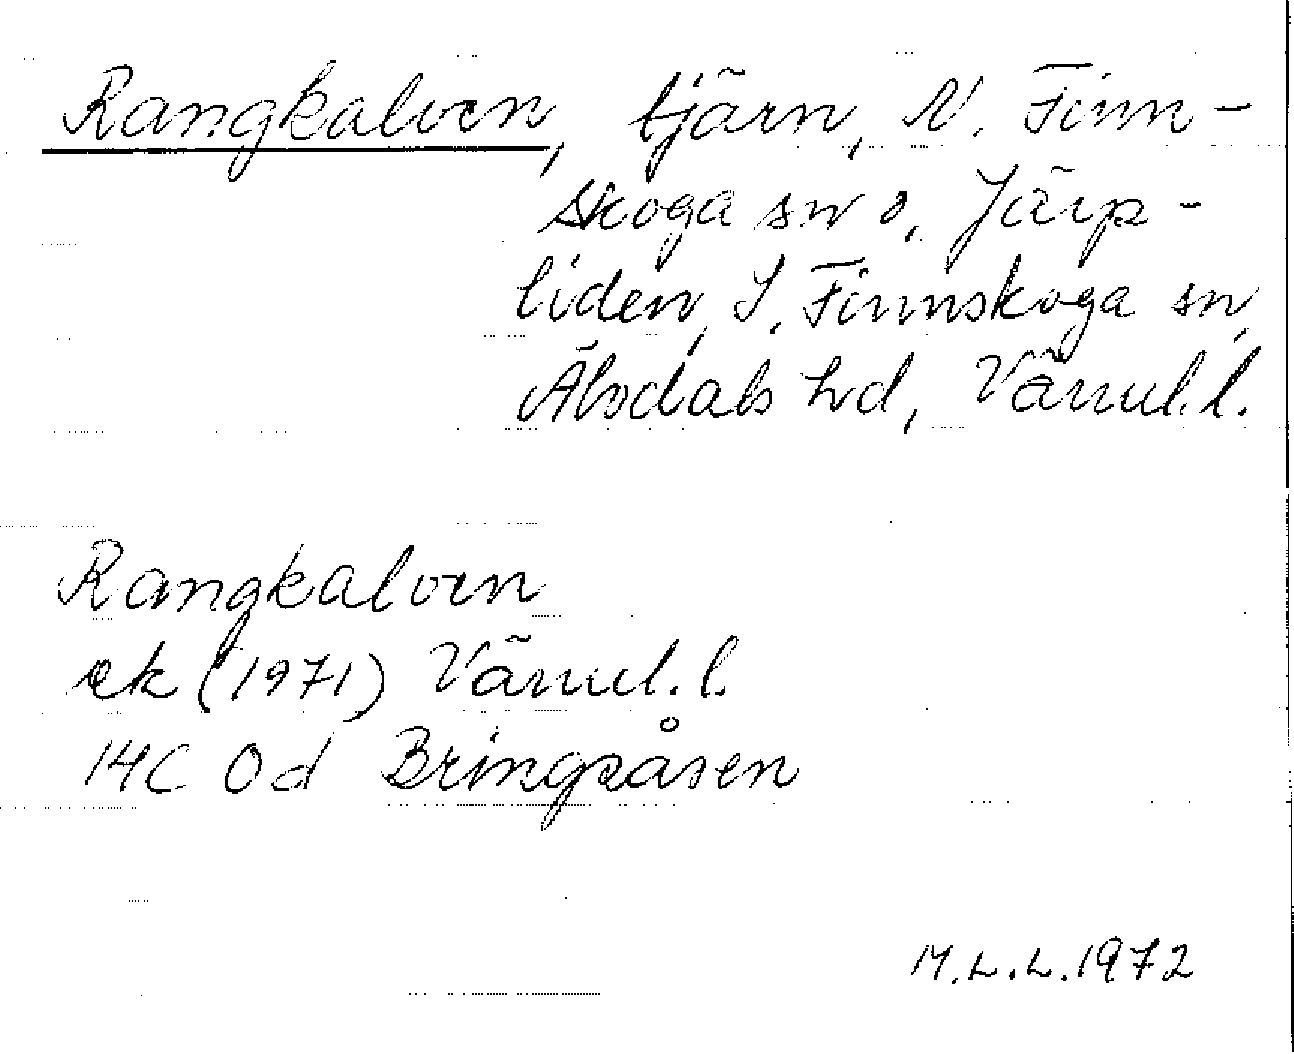 Rangkalven, tjärn, N. Finn-
skoga sn o. Järp-
liden, S. Finnskoga sn,
Älvdals hd, Värml. l.
Rangkalven
ek (1971) Värml. l.
14C 0d Bringsåsen
M.L.L. 1972